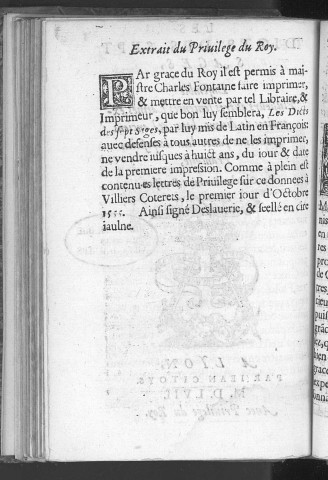 Extrait du Priuilege du Roy.
PAr grace du Roy il est permis à mai-
stre Charles Fontaine faire imprimer,
& mettre en vente par tel Libraire, &
Imprimeur, que bon luy semblera, Les Dicts
des sept Sages, par luy mis de Latin en François:
auec defenses à tous autres de ne les imprimer,
ne vendre iusques à huict ans, du iour & date
de la premiere impression. Comme à plein est
contenu es lettres de Priuilege sur ce donnees à
Villiers Coterets, le premier iour d'Octobre
Ainsi signé Deslauerie, & seellé en cire
iaulne.
A LYON,
PAR IEAN CITOYS.
M. D. LVII.
Auec Priuilege du Roy.